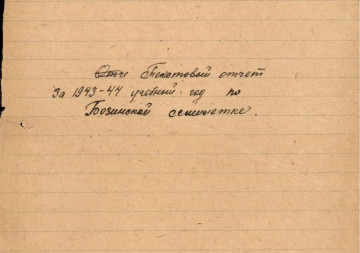 Текстовый отчет
За 1943-44 учебный год по
Бозинской семилетке.